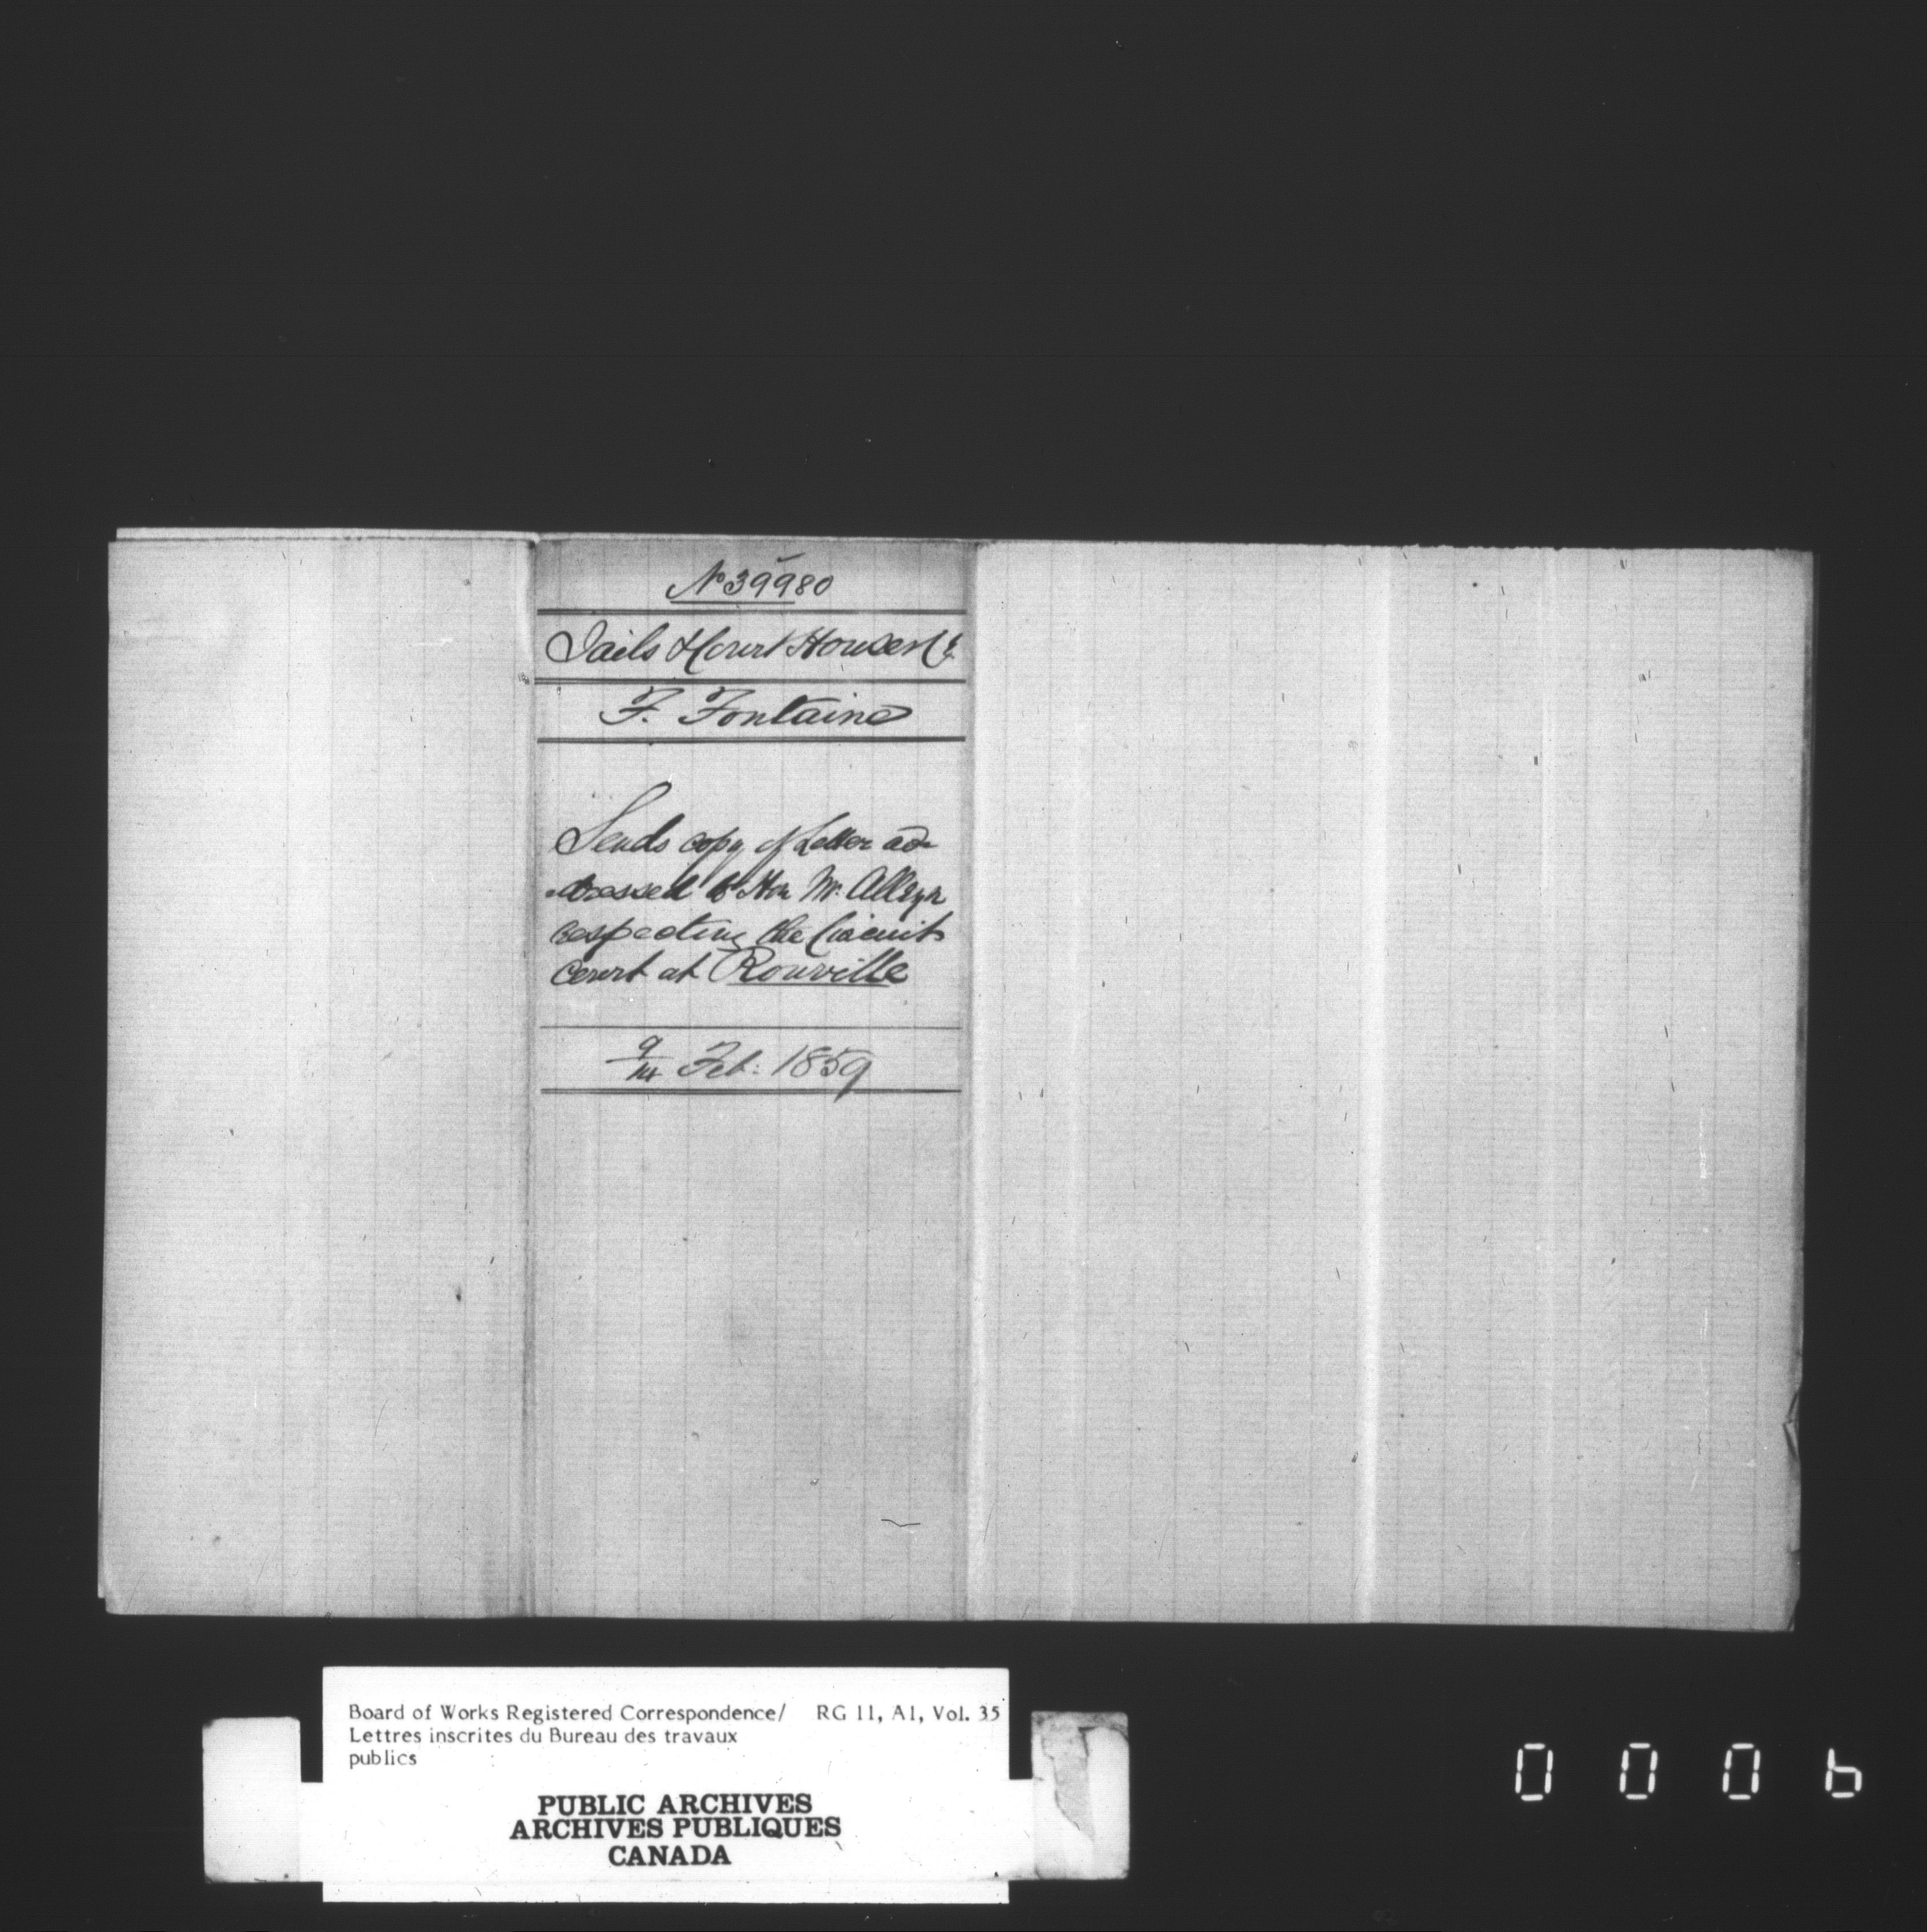 No 39980
Jails & Court Houses L C
F. Fontaine
Sends copy of Letter ad-
-dressed to Hon Mr. Alleyn
respecting the Circuit
Court at Rouville
9/14 Feb: 1859
Board of Works Registered Correspondence/ RG 11, A1, Vol. 35
Lettres inscrites du Bureau des travaux
publics
PUBLIC ARCHIVES
ARCHIVES PUBLIQUES
CANADA
0006